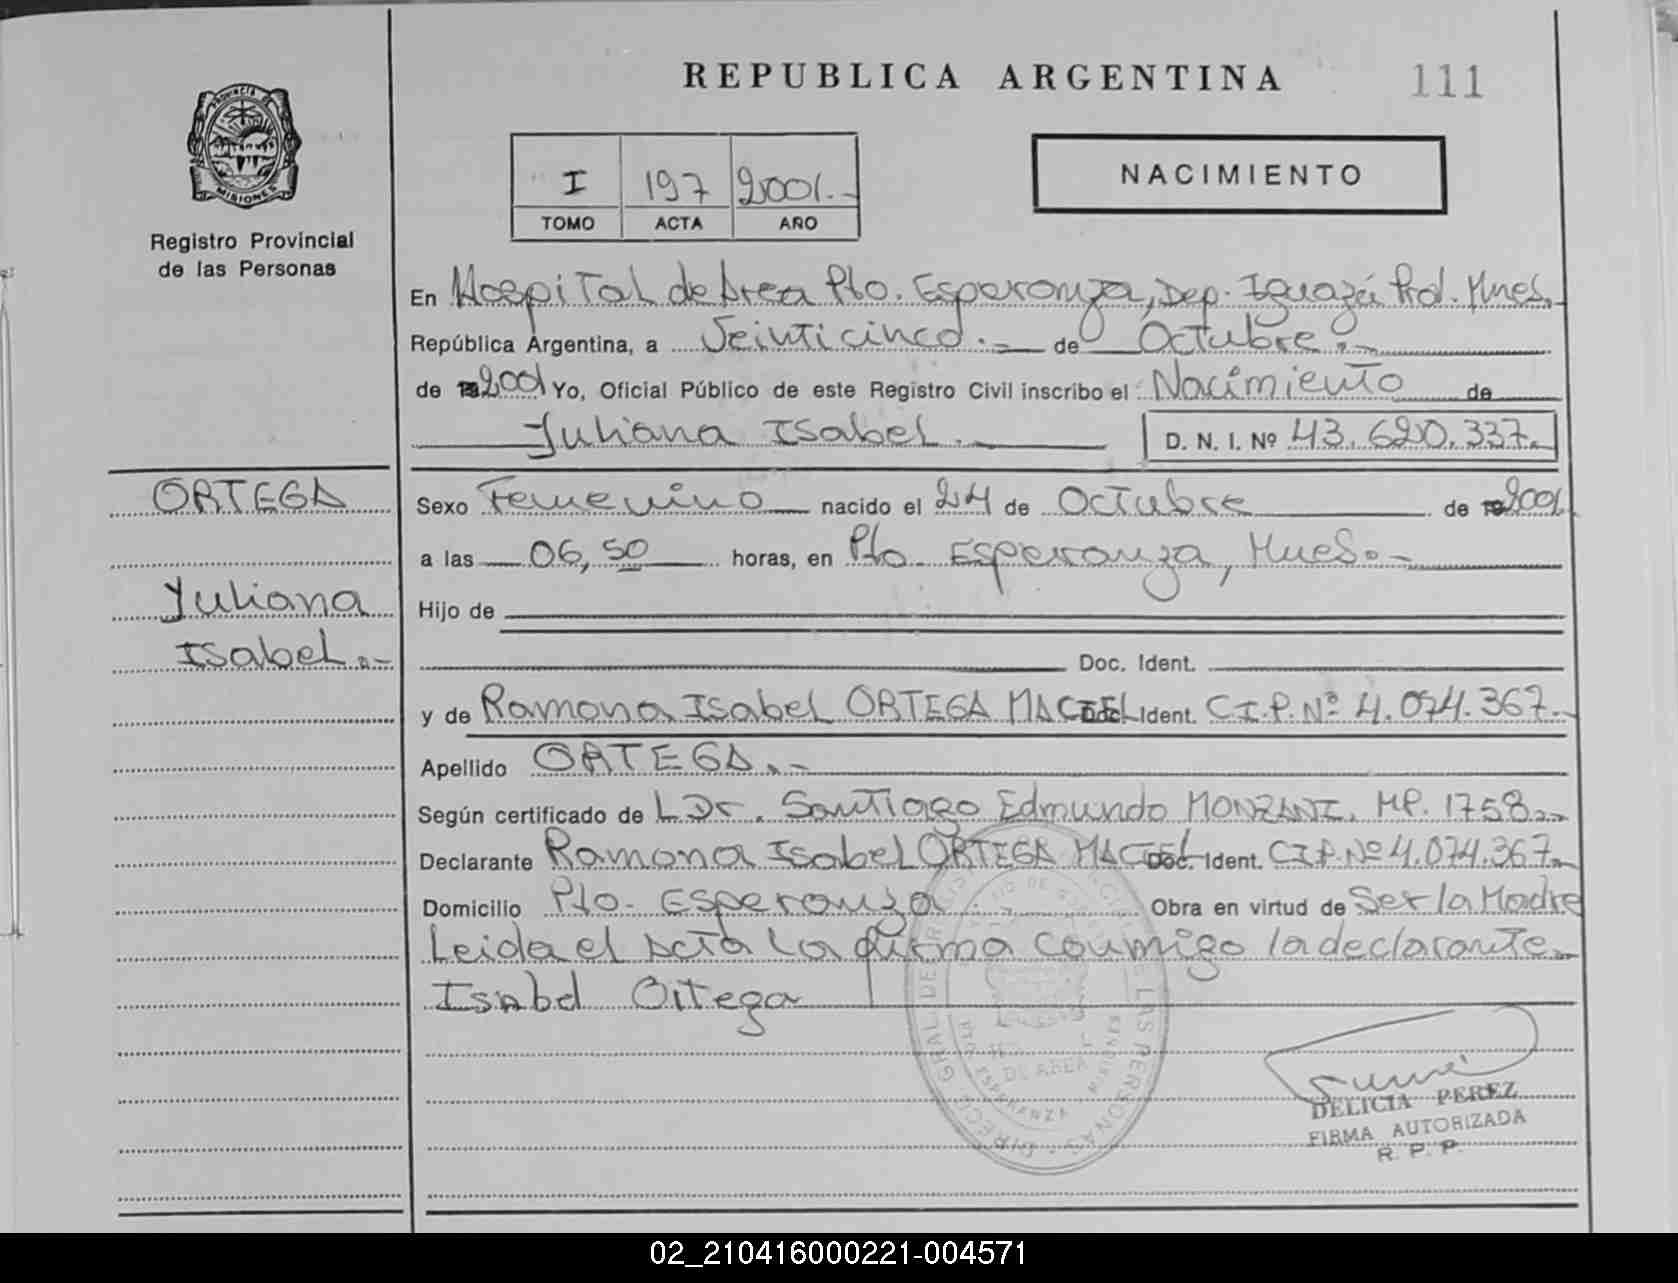 REPUBLICA ARGENTINA
111
PROVINCIA DE
MISIONES
Registro Provincial
de las Personas
I 197 2001.-
TOMO ACTA AÑO
NACIMIENTO
En Hospital de Area Pto. Esperanza, Dep. Iguazú Prov. Mnes.
República Argentina, a Veinticinco.- de Octubre.-
de 2001 Yo, Oficial Público de este Registro Civil inscribo el Nacimiento de
Yuliana Isabel.
D. N. I. Nº 43.620.337.-
ORTEGA
Yuliana
Isabel.-
Sexo Femenino nacido el 24 de Octubre de 2001
a las 06,50 horas, en Pto. Esperanza, Mnes.-
Hijo de
Doc. Ident.
y de Ramona Isabel ORTEGA MACIEL Doc. Ident. C.I.P. Nº 4.074.367.-
Apellido ORTEGA.-
Según certificado de L Dr. Santiago Edmundo MONZANI. MP. 1758.-
Declarante Ramona Isabel ORTEGA MACIEL Doc. Ident. C.I.P. Nº 4.074.367.-
Domicilio Pto. Esperanza Obra en virtud de Ser la Madre
Leida el Acta la firma conmigo la declarante.-
Isabel Ortega
DE AREA
DELICIA PEREZ
FIRMA AUTORIZADA
R. P. P.
02_210416000221-004571